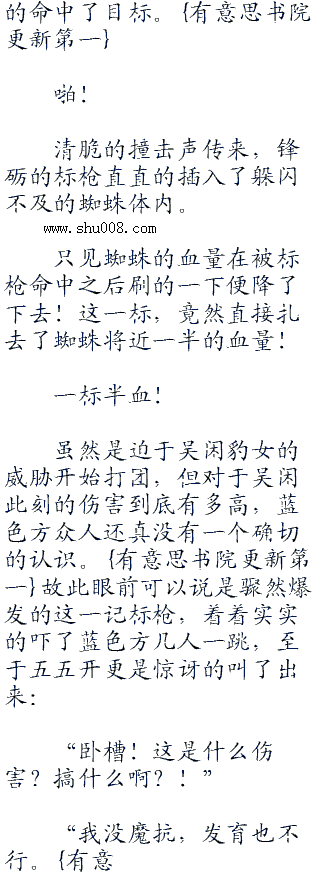 的命中了目标。{有意思书院
更新第一}
啪！
清脆的撞击声传来，锋
砺的标枪直直的插入了躲闪
不及的蜘蛛体内。
www.shu008.com
只见蜘蛛的血量在被标
枪命中之后刷的一下便降了
下去！这一标，竟然直接扎
去了蜘蛛将近一半的血量！
一标半血！
虽然是迫于吴闲豹女的
威胁开始打团，但对于吴闲
此刻的伤害到底有多高，蓝
色方众人还真没有一个确切
的认识。{有意思书院更新第
一}故此眼前可以说是骤然爆
发的这一记标枪，着着实实
的吓了蓝色方几人一跳，至
于五五开更是惊讶的叫了出
来：
“卧槽！这是什么伤
害？搞什么啊？！”
“我没魔抗，发育也不
行。{有意